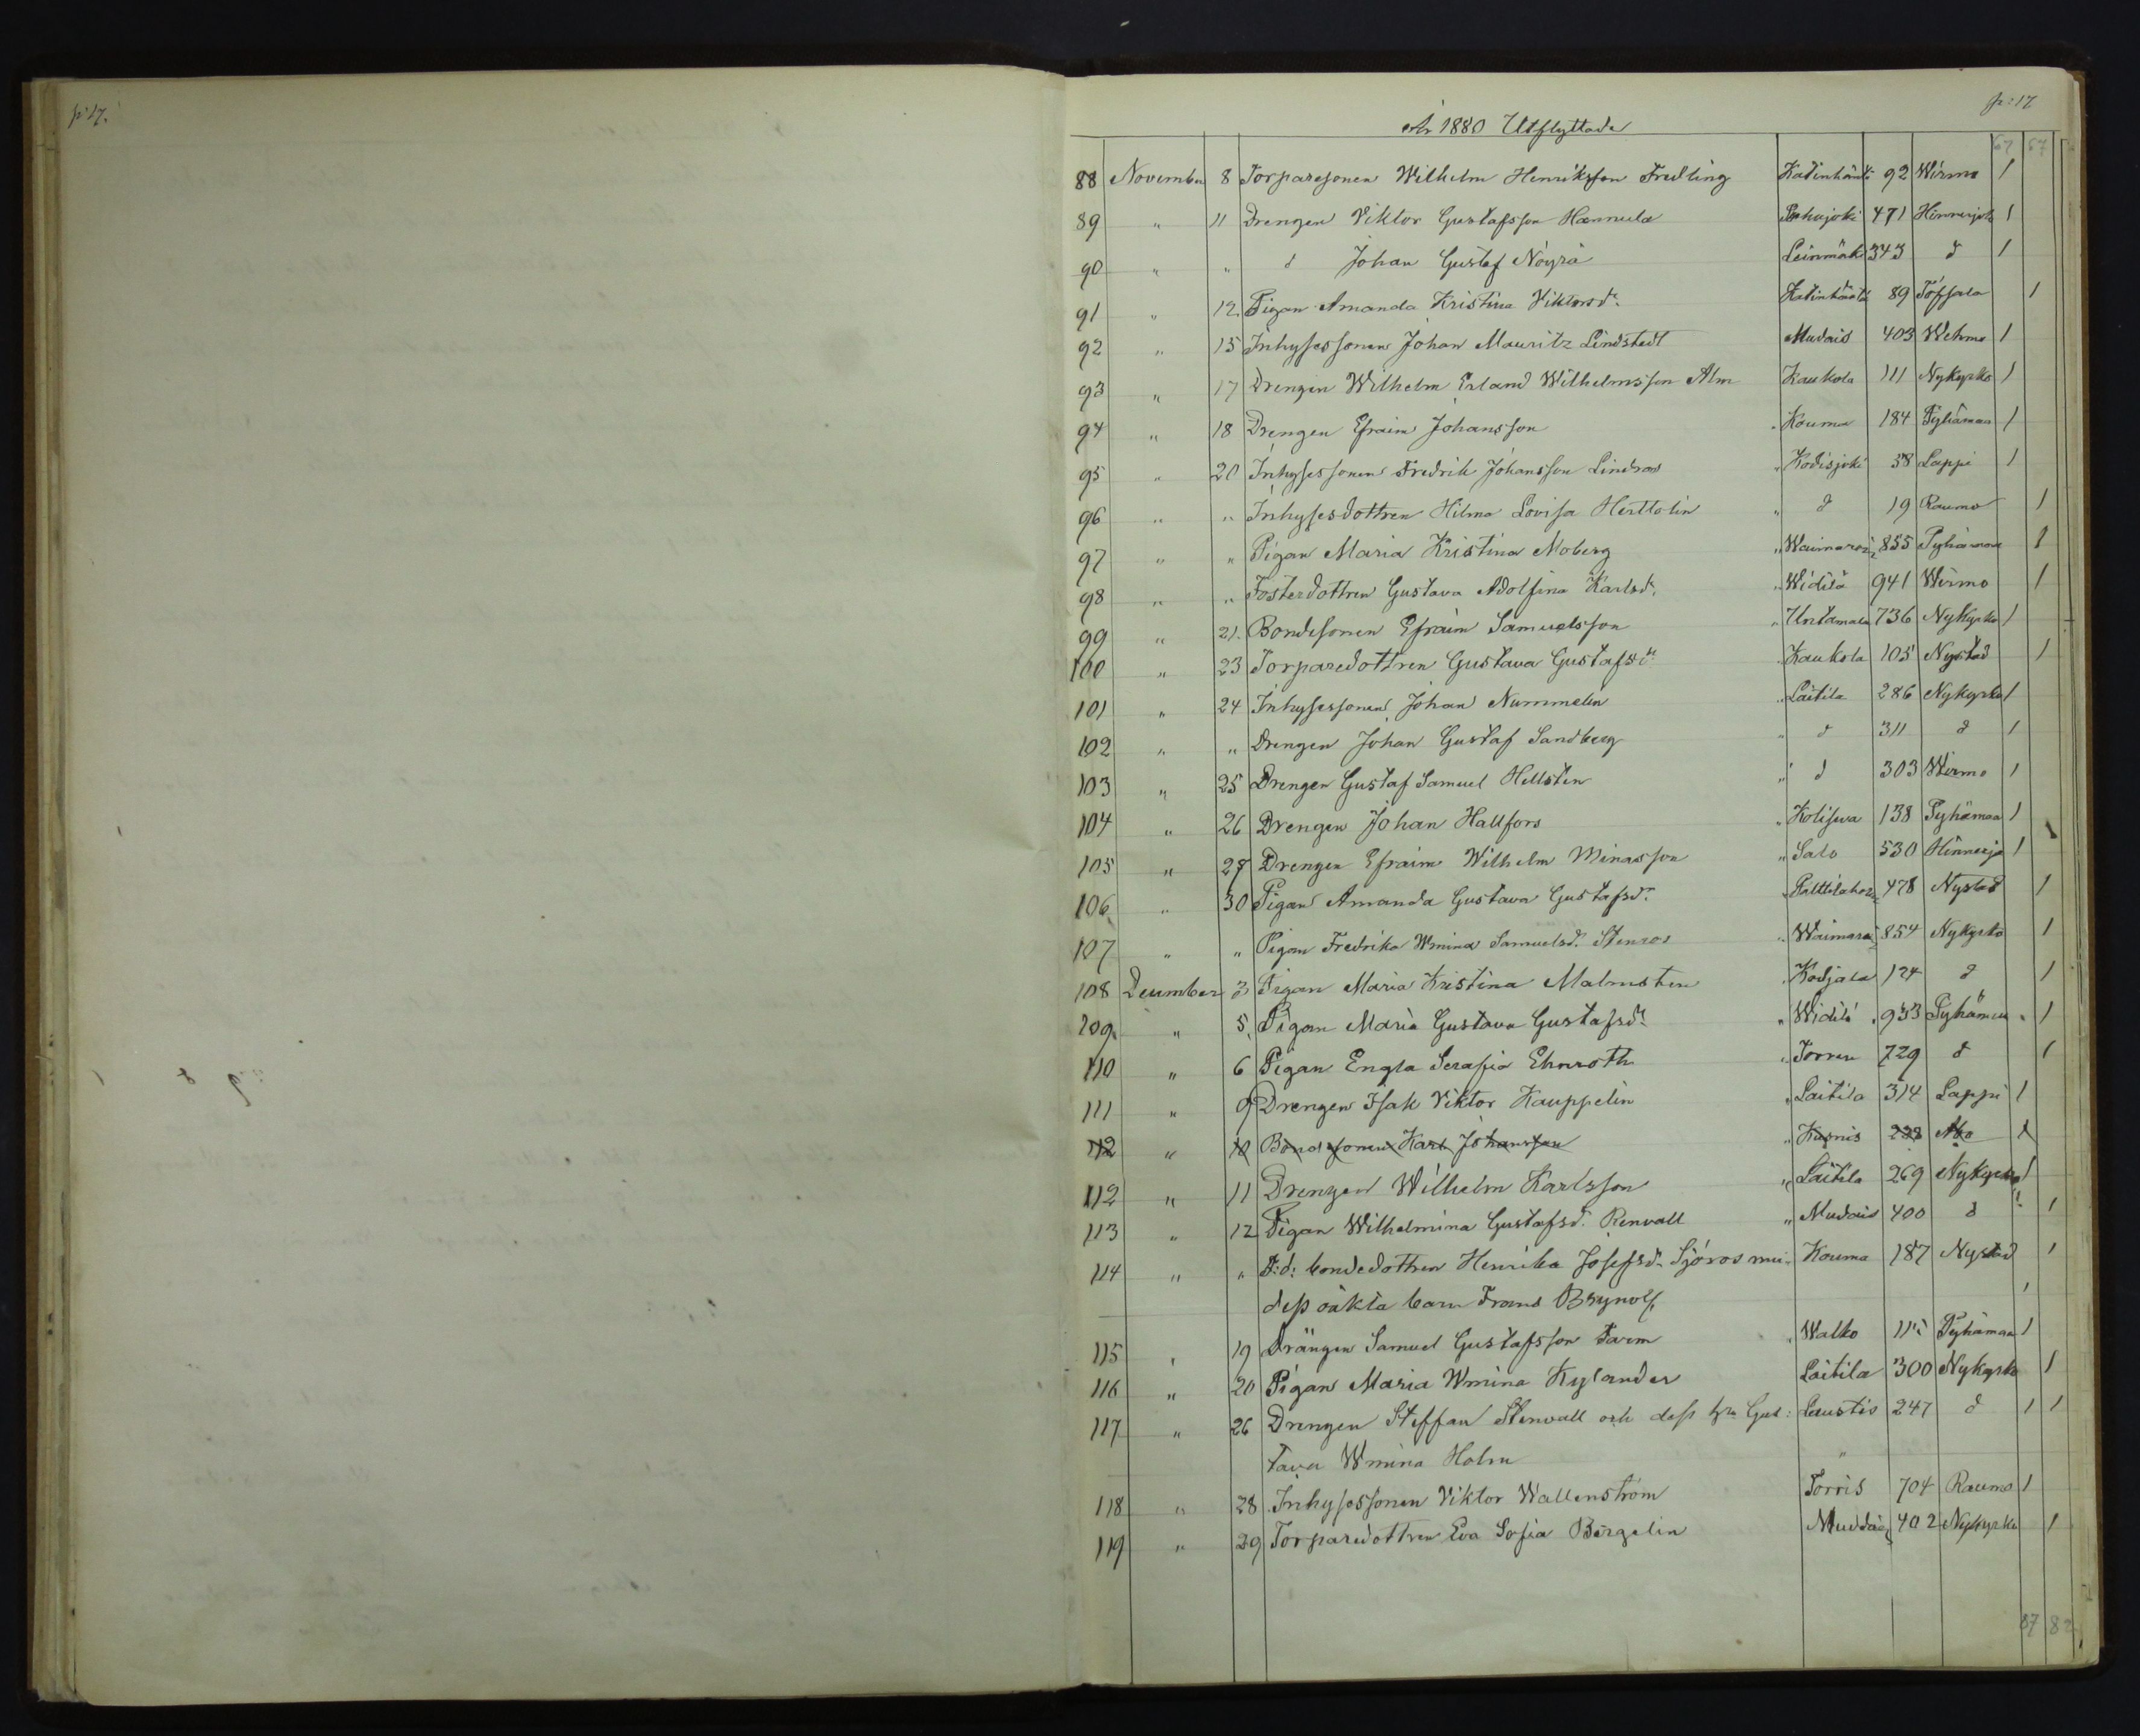 p: 17.
p: 17
År 1880 Utflyttade
67 67
88 November 8 Torparesonen Wilhelm Henriksson Fredling 92 Wirmo 1
89 " 11 Drengen Viktor Gustafsson Hannula 471 Hinnerjoki 1
90 " " d Johan Gustaf Nöyrä Leinmäki 343 d 1
91 " 12. Pigan Amanda Kristina Viktorsdr. 89 Töfsala 1
92 " 15 Inhysessonen Johan Mauritz Lindstedt Mudais 403 Wehmo 1
93 " 17 Drengen Wilhelm Erland Wilhelmsson Alm Kaukola 111 Nykyrko 1
94 " 18 Drengen Efraim Johansson " Kouma 184 Pyhämaa 1
95 " 20 Inhysessonen Fredrik Johansson Lindros " Kodisjoki 38 Lappi 1
96 " " Inhysesdottren Hilma Lovisa Herttolin " d 19 Raumo 1
97 " " Pigan Maria Kristina Moberg " 855 Pyhämaa 1
98 " " Fosterdottren Gustava Adolfina Karlsd. " Widilä 941 Wirmo 1
99 " 21. Bondesonen Efraim Samuelsson " Untamala 736 Nykyrko 1
100 " 23 Torparedottren Gustava Gustafsdr " Kaukola 105 Nystad 1
101 " 24 Inhysessonen Johan Nummelin " Laitila 286 Nykyrko 1
102 " " Drengen Johan Gustaf Sandberg " d 311 d 1
103 " 25 Drengen Gustaf Samuel Hellsten " d 303 Wirmo 1
104 " 26 Drengen Johan Hallfors " Kolisuva 138 Pyhämaa 1
105 " 27 Drengen Efraim Wilhelm Minasson " Salo 530 Hinnerjo 1
106 " 30 Pigan Amanda Gustava Gustafsdr. " 478 Nystad 1
107 " " Pigan Fredrika Wmina Samuelsd. Stenros " 854 Nykyrko 1
108 December 3 Pigan Maria Kristina Malmsten " Kodjala 124 d 1
209. " 5. Pigan Maria Gustava Gustafsdr. " Widilä 933 Pyhämaa 1
110 " 6 Pigan Engla Serafia Ehnroth " Torren 729 d 1
111 " 9 Drengen Isak Viktor Kauppelin " Laitila 314 Lappi 1
112 " 10 Bondesonen Karl Johansson " Kusnis 238 Åbo 1
112 " 11 Drengen Wilhelm Karlsson " Laitila 269 Nykyrko 1
113 " 12 Pigan Wilhelmina Gustafsd. Renvall " Mudais 400 d 1
114 " " F:d: bondedottren Henrika Josefsdr. Sjöros mei- Kouma 187 Nystad 1
dess oäkta barn Frans Brynolf 1
115 " 19 Drängen Samuel Gustafsson Farm " Walko Pyhämaa 1
116 " 20 Pigan Maria Wmina Kylander Laitila 300 Nykyrko 1
117 " 26 Drengen Steffan Stenvall och dess hu Gus: Laustis 247 d 1 1
tava Wmina Holm "
118 " 28 Inhysessonen Viktor Wallenström Torris 704 Raumo 1
119 " 29 Torparedottren Eva Sofia Bergelin Muddais 402 Nykyrko 1
87 82